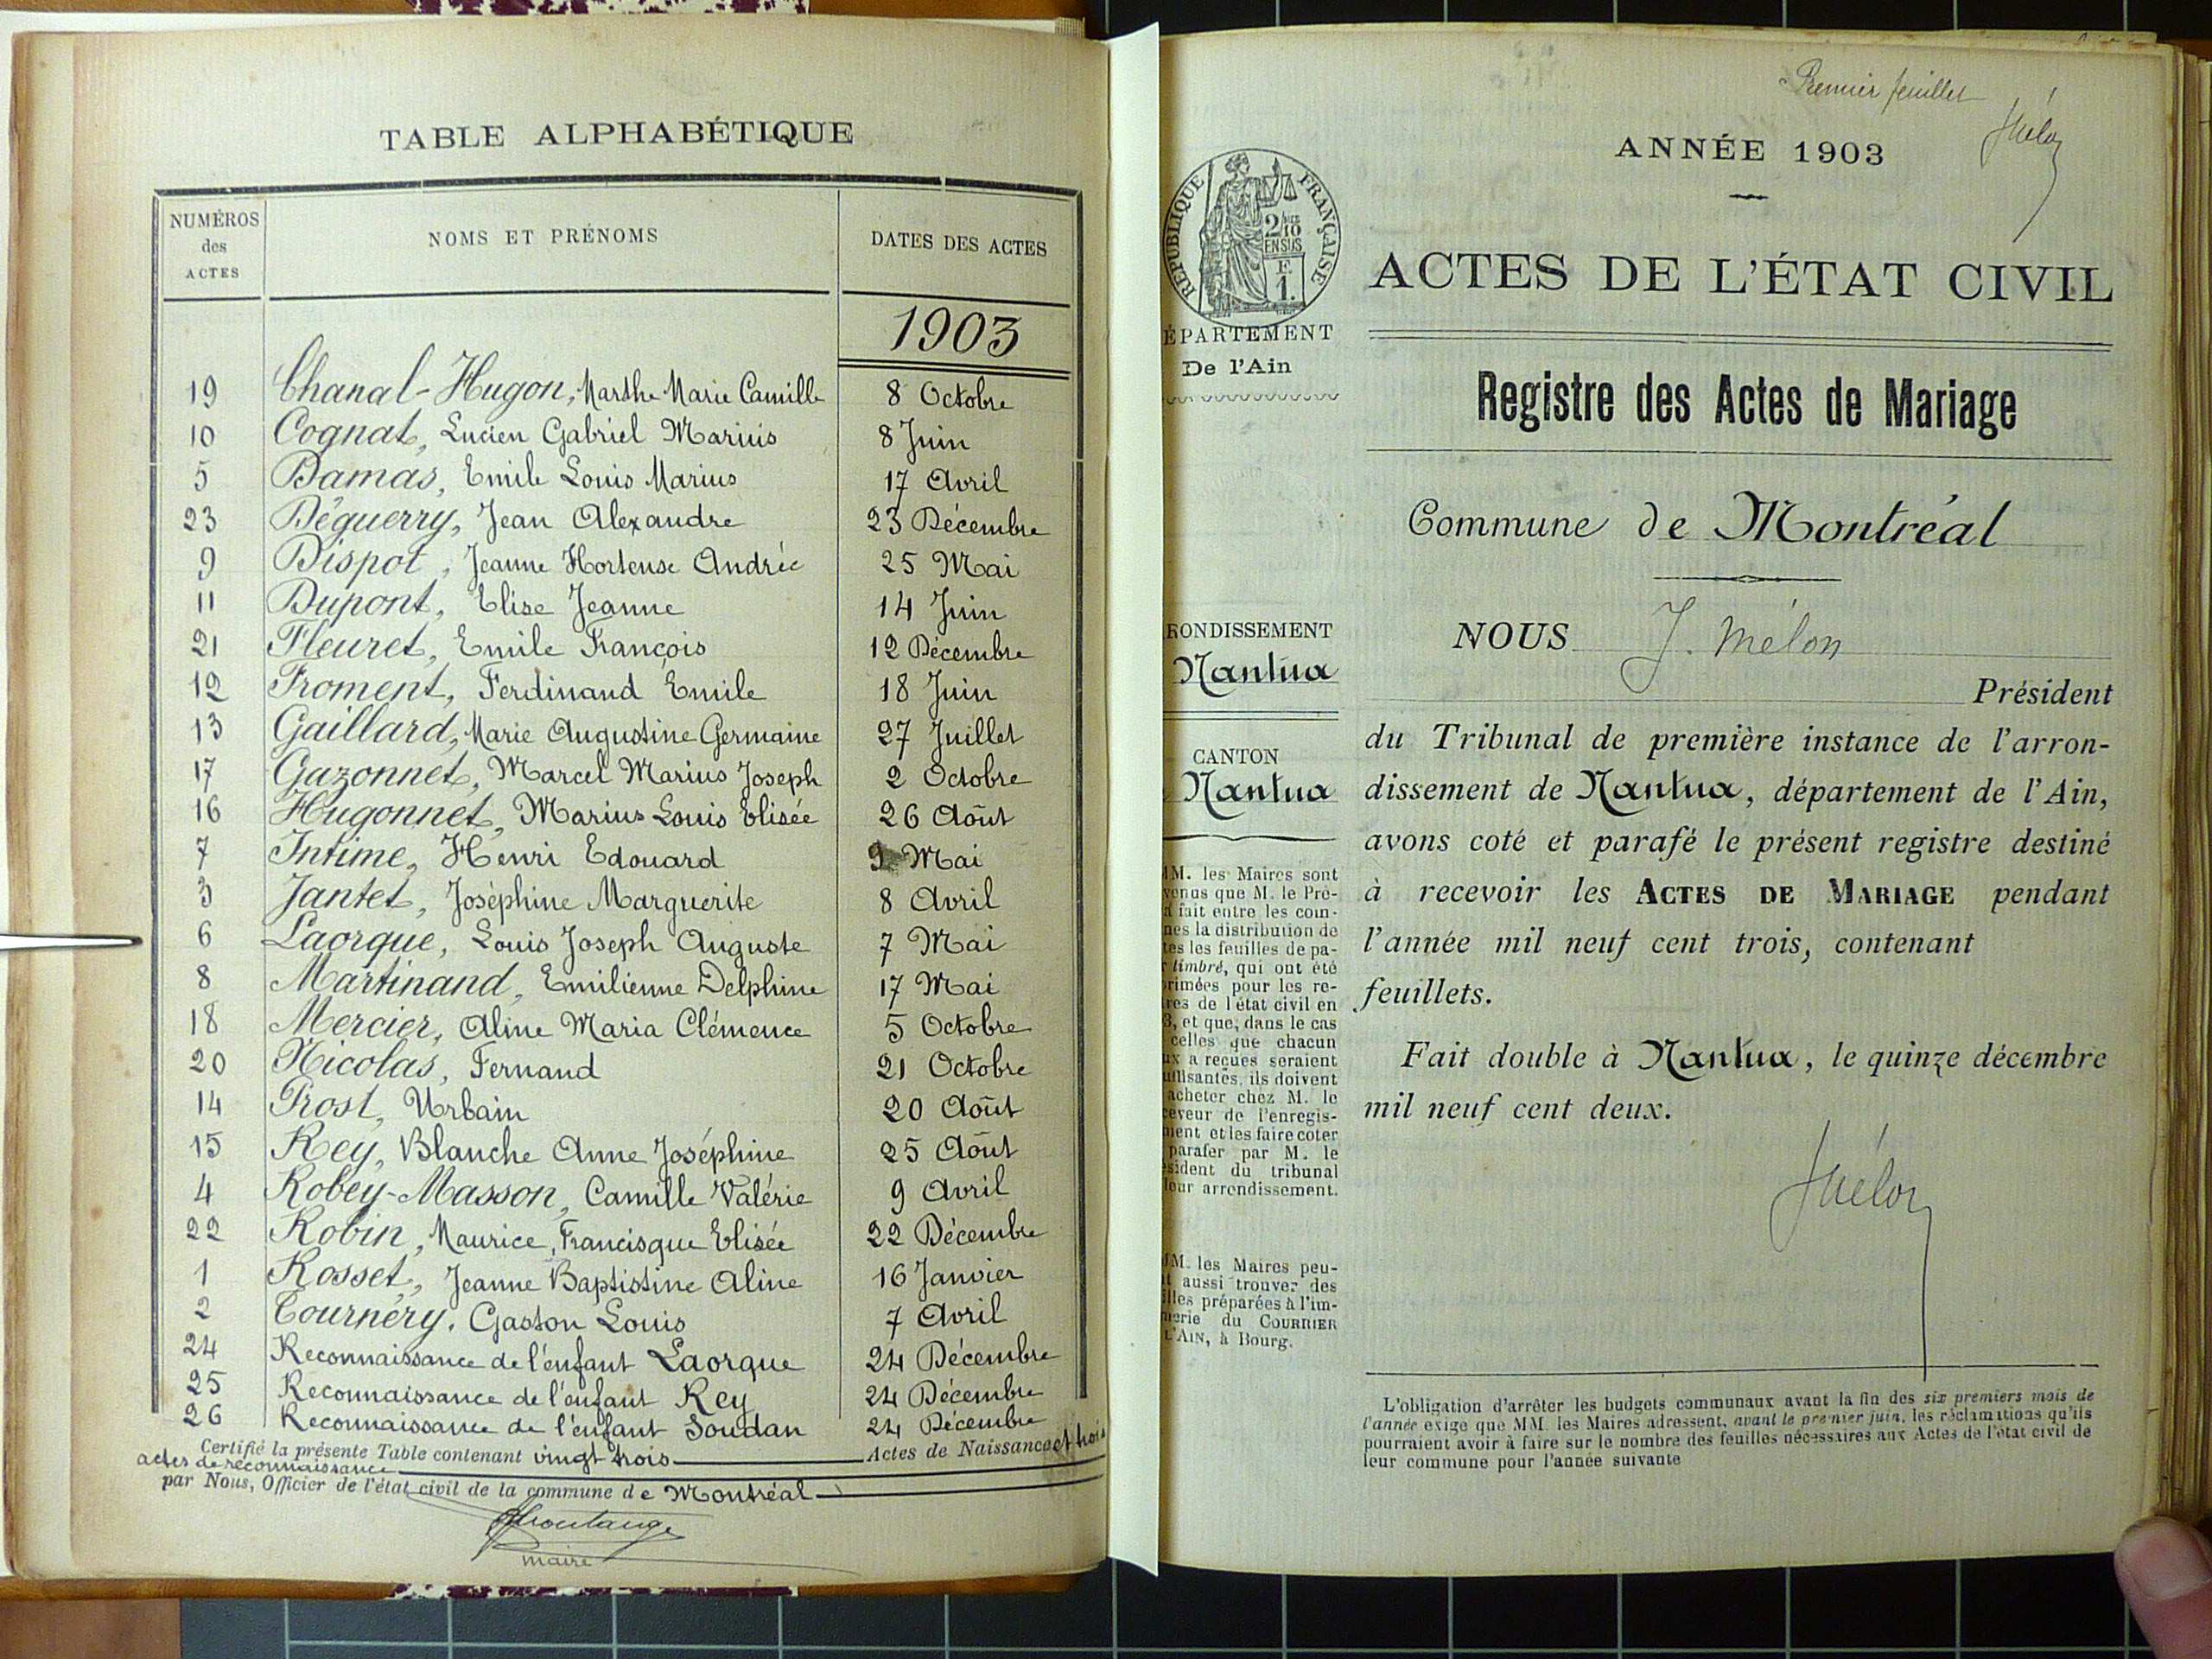 TABLE ALPHABÉTIQUE
NUMÉROS des ACTES
NOMS ET PRÉNOMS
DATES DES ACTES
1903
19 Chanal-Hugon, Marthe Marie Camille 8 Octobre
10 Cognat, Lucien Gabriel Marius 8 Juin
5 Damas, Emile Louis Marius 17 Avril
23 Déguerry, Jean Alexandre 23 Décembre
9 Dispot, Jeanne Hortense Andrée 25 Mai
11 Dupont, Elise Jeanne 14 Juin
21 Fleuret, Emile François 12 Décembre
12 Froment, Ferdinand Emile 18 Juin
13 Gaillard, Marie Augustine Germaine 27 Juillet
17 Gazonnet, Marcel Marius Joseph 2 Octobre
16 Hugonnet, Marius Louis Elisée 26 Août
7 Intime, Henri Edouard 9 Mai
3 Jantet, Joséphine Marguerite 8 Avril
6 Laorque, Louis Joseph Auguste 7 Mai
8 Martinand, Emilienne Delphine 17 Mai
18 Mercier, Aline Maria Clémence 5 Octobre
20 Nicolas, Fernand 21 Octobre
14 Prost, Urbain 20 Août
15 Rey, Blanche Anne Joséphine 25 Août
4 Robey-Masson, Camille Valérie 9 Avril
22 Robin, Maurice, Francisque Elisée 22 Décembre
1 Rosset, Jeanne Baptistine Aline 16 Janvier
2 Tournéry, Gaston Louis 7 Avril
24 Reconnaissance de l'enfant Laorque 24 Décembre
25 Reconnaissance de l'enfant Rey 24 Décembre
26 Reconnaissance de l'enfant Soudan 24 Décembre
Certifié la présente Table contenant vingt trois Actes de Naissance et trois
actes de reconnaissance
par Nous, Officier de l'état civil de la commune de Montréal
maire
Premier feuillet
Mélon
ANNÉE 1903
RÉPUBLIQUE FRANÇAISE
2/10
EN SUS
F.
1.
ÉPARTEMENT
De l'Ain
ACTES DE L'ÉTAT CIVIL
Registre des Actes de Mariage
Commune de Montréal
RONDISSEMENT
Nantua
CANTON
Nantua
M. les Maires sont
venus que M. le Pré-
a fait entre les com-
nes la distribution de
tes les feuilles de pa-
r timbré, qui ont été
rimées pour les re-
res de l'état civil en
3, et que, dans le cas
celles que chacun
ux a reçues seraient
uffisantes, ils doivent
acheter chez M. le
ceveur de l'enregis-
ment et les faire coter
parafer par M. le
ésident du tribunal
leur arrondissement.
MM. les Maires peu-
t aussi trouver des
illes préparées à l'im-
merie du COURRIER
L'AIN, à Bourg.
NOUS J. Mélon
Président
du Tribunal de première instance de l'arron-
dissement de Nantua, département de l'Ain,
avons coté et parafé le présent registre destiné
à recevoir les ACTES DE MARIAGE pendant
l'année mil neuf cent trois, contenant
feuillets.
Fait double à Nantua, le quinze décembre
mil neuf cent deux.
JMélon
L'obligation d'arrêter les budgets communaux avant la fin des six premiers mois de
l'année exige que MM. les Maires adressent, avant le premier juin, les réclamations qu'ils
pourraient avoir à faire sur le nombre des feuilles nécessaires aux Actes de l'état civil de
leur commune pour l'année suivante